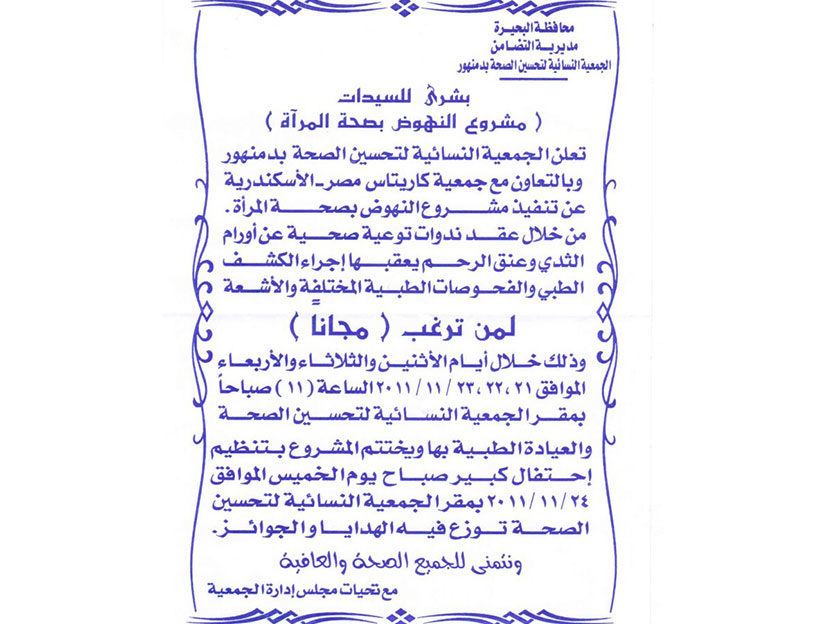 محافظة البحيرة
مديرية التضامن
الجمعية النسائية لتحسين الصحة بدمنهور
بشرى للسيدات
( مشروع النهوض بصحة المرآة )
تعلن الجمعية النسائية لتحسين الصحة بدمنهور
وبالتعاون مع جمعية كاريتاس مصر - الأسكندرية
عن تنفيذ مشروع النهوض بصحة المرأة .
من خلال عقد ندوات توعية صحية عن أورام
الثدي وعنق الرحم يعقبها إجراء الكشف
الطبي والفحوصات الطبية المختلفة والأشعة
لمن ترغب ( مجاناً )
وذلك خلال أيام الأثنين والثلاثاء والأربعاء
الموافق ٢١ ، ٢٢ ، ٢٣ / ١١ / ٢٠١١ الساعة ( ١١ ) صباحاً
بمقر الجمعية النسائية لتحسين الصحة
والعيادة الطبية بها ويختتم المشروع بتنظيم
إحتفال كبير صباح يوم الخميس الموافق
٢٤ / ١١ / ٢٠١١ بمقر الجمعية النسائية لتحسين
الصحة توزع فيه الهدايا والجوائز .
ونتمنى للجميع الصحة والعافية
مع تحيات مجلس إدارة الجمعية